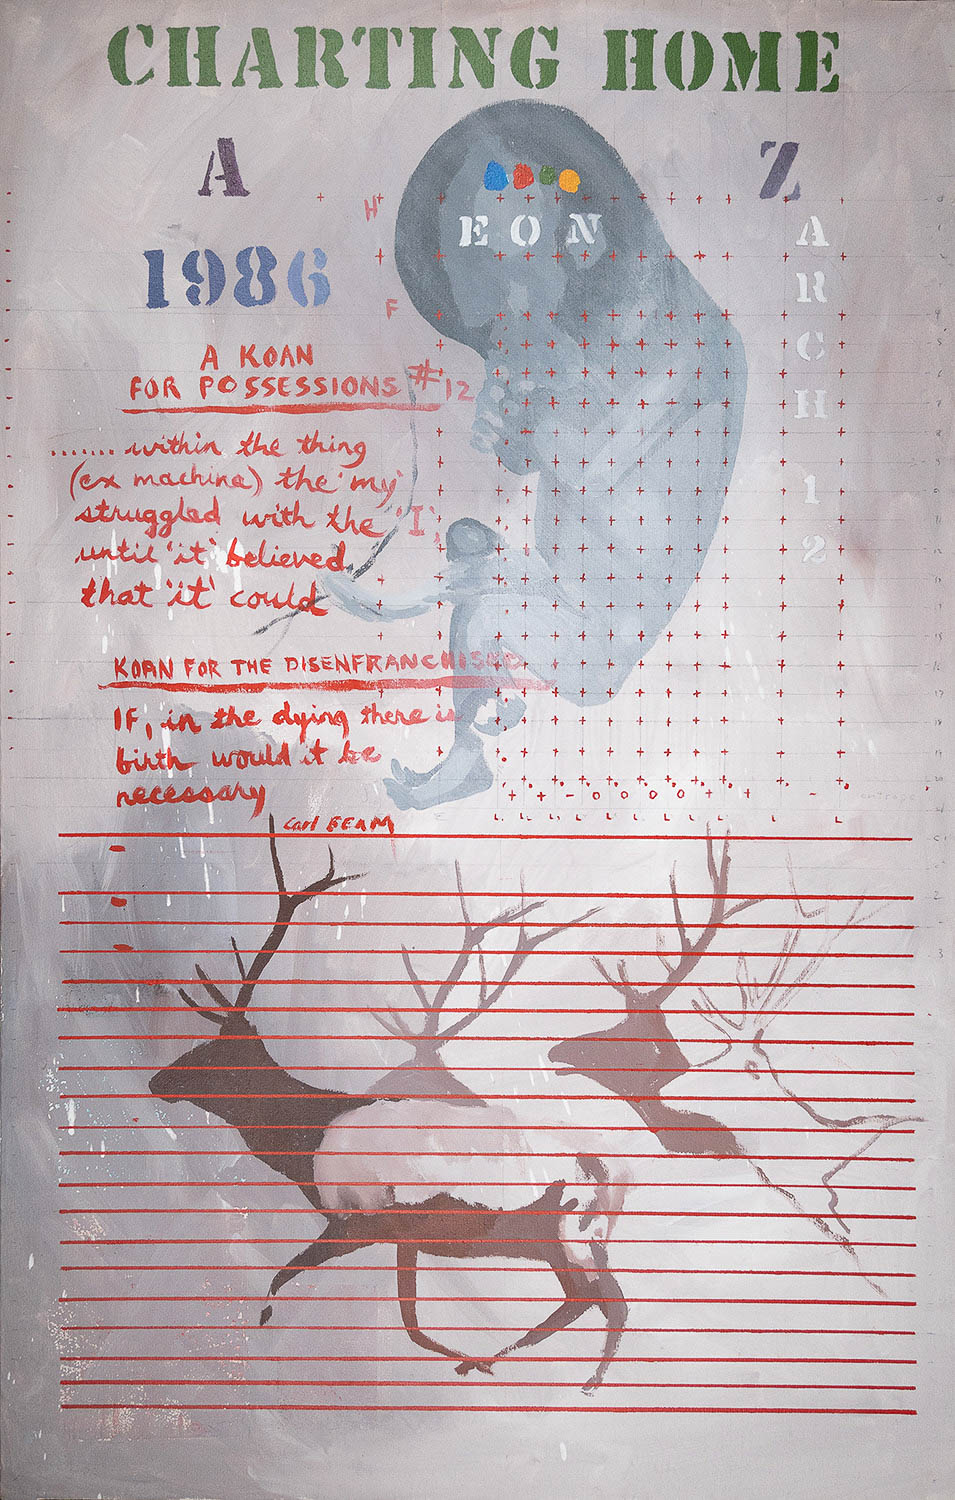 CHARTING HOME
A Z
1986
H
EON
F
ARCH 12
A KOAN
FOR POSSESSIONS #12
....... within the thing
(ex machina) the 'my'
struggled with the 'I',
until 'it' believed
that 'it' could
KOAN FOR THE DISENFRANCHISED
IF, in the dying there is
birth would it be
necessary
Carl BEAM
+ + - o o o o + + -
L L L L L L L L L L L